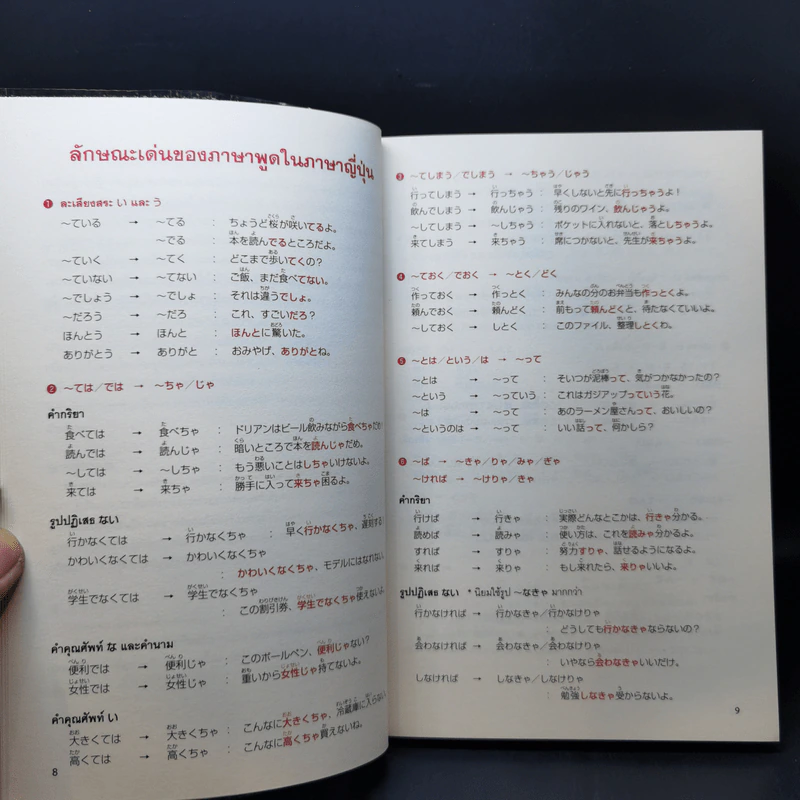 ลักษณะเด่นของภาษาพูดในภาษาญี่ปุ่น
❶ ละเสียงสระ い และ う
～ている → ～てる : ちょうど桜が咲いてるよ。
～でる : 本を読んでるところだよ。
～ていく → ～てく : どこまで歩いてくの？
～ていない → ～てない : ご飯、まだ食べてない。
～でしょう → ～でしょ : それは違うでしょ。
～だろう → ～だろ : これ、すごいだろ？
ほんとう → ほんと : ほんとに驚いた。
ありがとう → ありがと : おみやげ、ありがとね。
❷ ～ては／では → ～ちゃ／じゃ
คำกริยา
食べては → 食べちゃ : ドリアンはビール飲みながら食べちゃだめ
読んでは → 読んじゃ : 暗いところで本を読んじゃだめ。
～しては → ～しちゃ : もう悪いことはしちゃいけないよ。
来ては → 来ちゃ : 勝手に入って来ちゃ困るよ。
รูปปฏิเสธ ない
行かなくては → 行かなくちゃ : 早く行かなくちゃ、遅刻する！
かわいくなくては → かわいくなくちゃ
: かわいくなくちゃ、モデルにはなれない
学生でなくては → 学生でなくちゃ
: この割引券、学生でなくちゃ使えないよ
คำคุณศัพท์ な และคำนาม
便利では → 便利じゃ : このボールペン、便利じゃない？
女性では → 女性じゃ : 重いから女性じゃ持てないよ。
คำคุณศัพท์ い
大きくては → 大きくちゃ : こんなに大きくちゃ、冷蔵庫に入らない
高くては → 高くちゃ : こんなに高くちゃ買えないね。
8
❸ ～てしまう／でしまう → ～ちゃう／じゃう
行ってしまう → 行っちゃう : 早くしないと先に行っちゃうよ！
飲んでしまう → 飲んじゃう : 残りのワイン、飲んじゃうよ。
～してしまう → ～しちゃう : ポケットに入れないと、落としちゃうよ。
来てしまう → 来ちゃう : 席につかないと、先生が来ちゃうよ。
❹ ～ておく／でおく → ～とく／どく
作っておく → 作っとく : みんなの分のお弁当も作っとくよ。
頼んでおく → 頼んどく : 前もって頼んどくと、待たなくていいよ。
～しておく → しとく : このファイル、整理しとくわ。
❺ ～とは／という／は → ～って
～とは → ～って : そいつが泥棒って、気がつかなかったの？
～という → ～っていう : これはガジアップっていう花。
～は → ～って : あのラーメン屋さんって、おいしいの？
～というのは → ～って : いい話って、何かしら？
❻ ～ば → ～きゃ／りゃ／みゃ／ぎゃ
～ければ → ～けりゃ／きゃ
คำกริยา
行けば → 行きゃ : 実際どんなとこかは、行きゃ分かる。
読めば → 読みゃ : 使い方は、これを読みゃ分かるよ。
すれば → すりゃ : 努力すりゃ、話せるようになるよ。
来れば → 来りゃ : もし来れたら、来りゃいいよ。
รูปปฏิเสธ ない * นิยมใช้รูป ～なきゃ มากกว่า
行かなければ → 行かなきゃ／行かなけりゃ
: どうしても行かなきゃならないの？
会わなければ → 会わなきゃ／会わなけりゃ
: いやなら会わなきゃいいだけ。
しなければ → しなきゃ／しなけりゃ
: 勉強しなきゃ受からないよ。
9